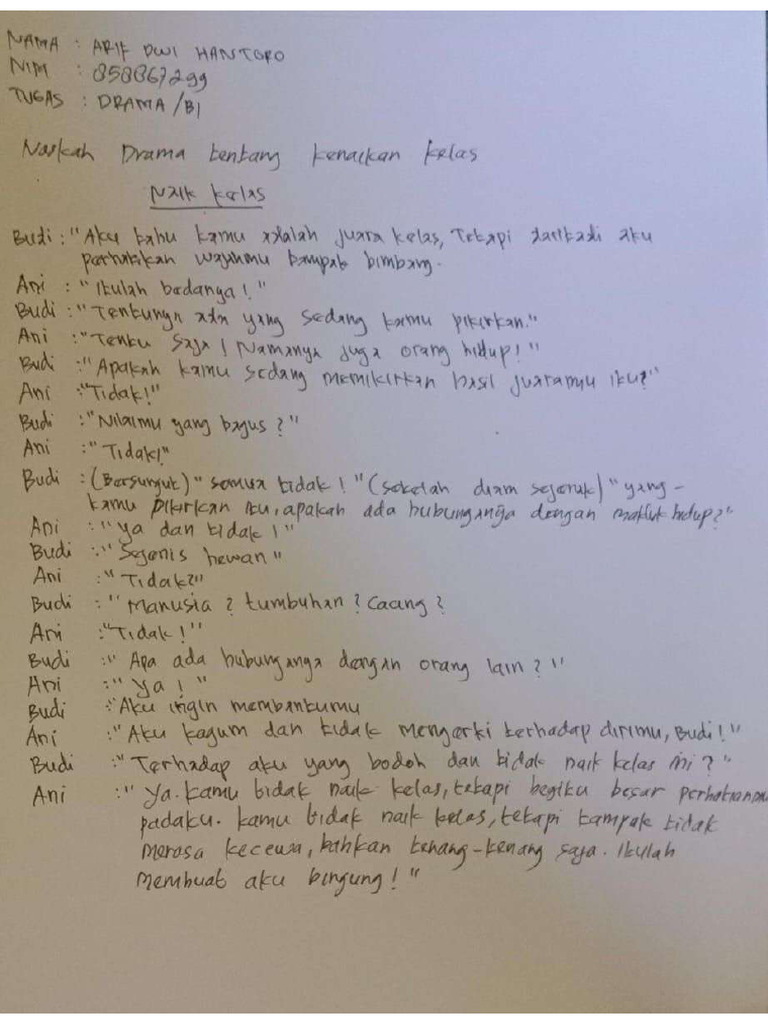 NAMA : ARIF DWI HANTORO
NIM : 858867299
TUGAS : DRAMA / BI
Naskah Drama tentang kenaikan kelas
Naik kelas
Budi : "Aku tahu kamu adalah juara kelas, Tetapi daritadi aku
perhatikan wajahmu tampak bimbang.
Ani : "Itulah bedanya!"
Budi : "Tentunya ada yang sedang kamu pikirkan."
Ani : "Tentu saja! Namanya juga orang hidup!"
Budi : "Apakah kamu sedang memikirkan hasil juaramu itu?"
Ani : "Tidak!"
Budi : "Nilaimu yang bagus?"
Ani : "Tidak!"
Budi : (Bersungut) "semua tidak!" (setelah diam sejenak) "yang-
kamu pikirkan itu, apakah ada hubungannya dengan makluk hidup?"
Ani : "Ya dan tidak!"
Budi : "Sejenis hewan"
Ani : "Tidak?"
Budi : "Manusia? tumbuhan? Cacing?
Ani : "Tidak!"
Budi : "Apa ada hubungannya dengan orang lain?"
Ani : "Ya!"
Budi : "Aku ingin membantumu
Ani : "Aku kagum dan tidak mengerti terhadap dirimu, Budi!"
Budi : "Terhadap aku yang bodoh dan tidak naik kelas ini?"
Ani : "Ya. Kamu tidak naik kelas, tetapi begitu besar perhatianmu
padaku. kamu tidak naik kelas, tetapi tampak tidak
merasa kecewa, bahkan tenang-tenang saja. Itulah
membuat aku bingung!"